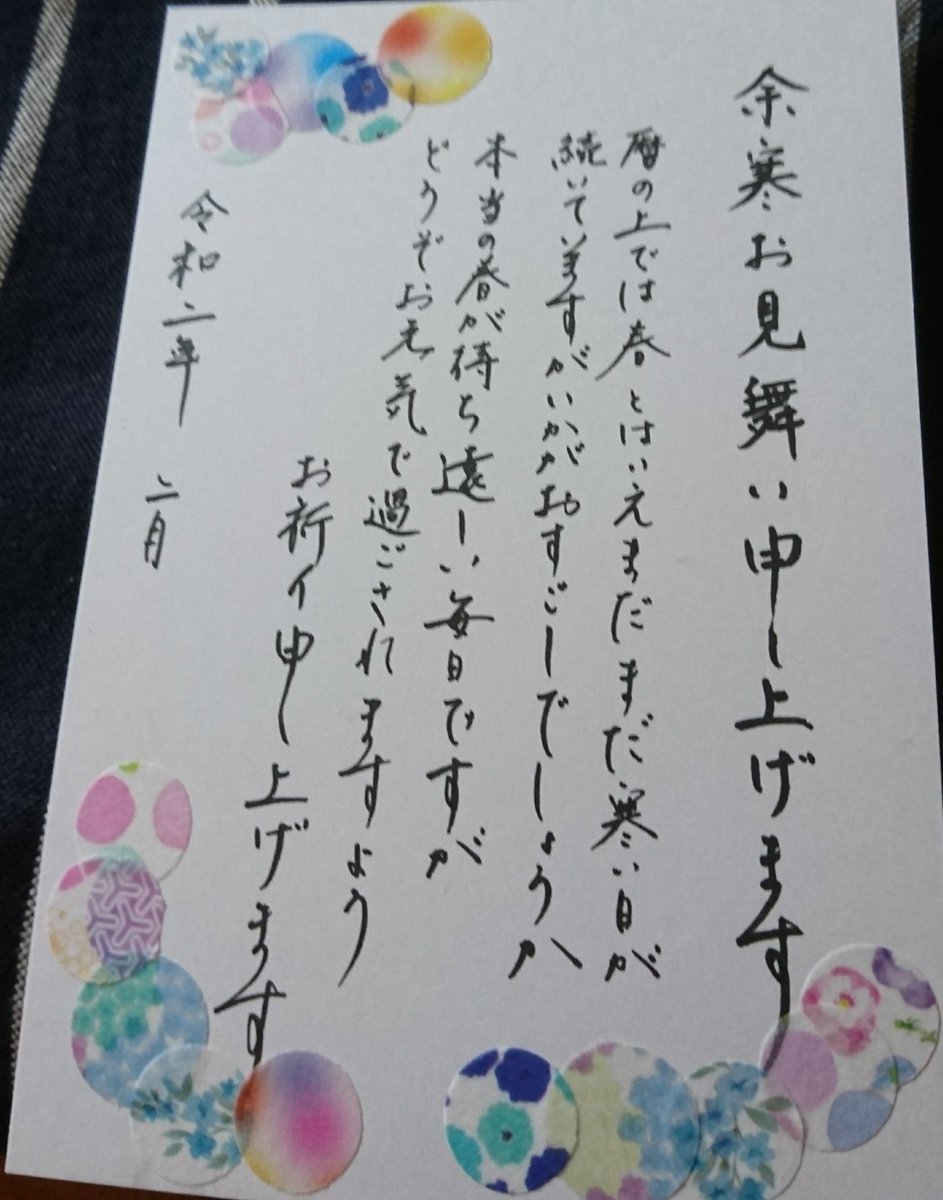 余寒お見舞い申し上げます
暦の上では春とはいえまだまだ寒い日が
続いてますがいかがおすごしでしょうか
本当の春が待ち遠しい毎日ですが
どうぞお元気で過ごされますよう
お祈り申し上げます
令和二年 二月